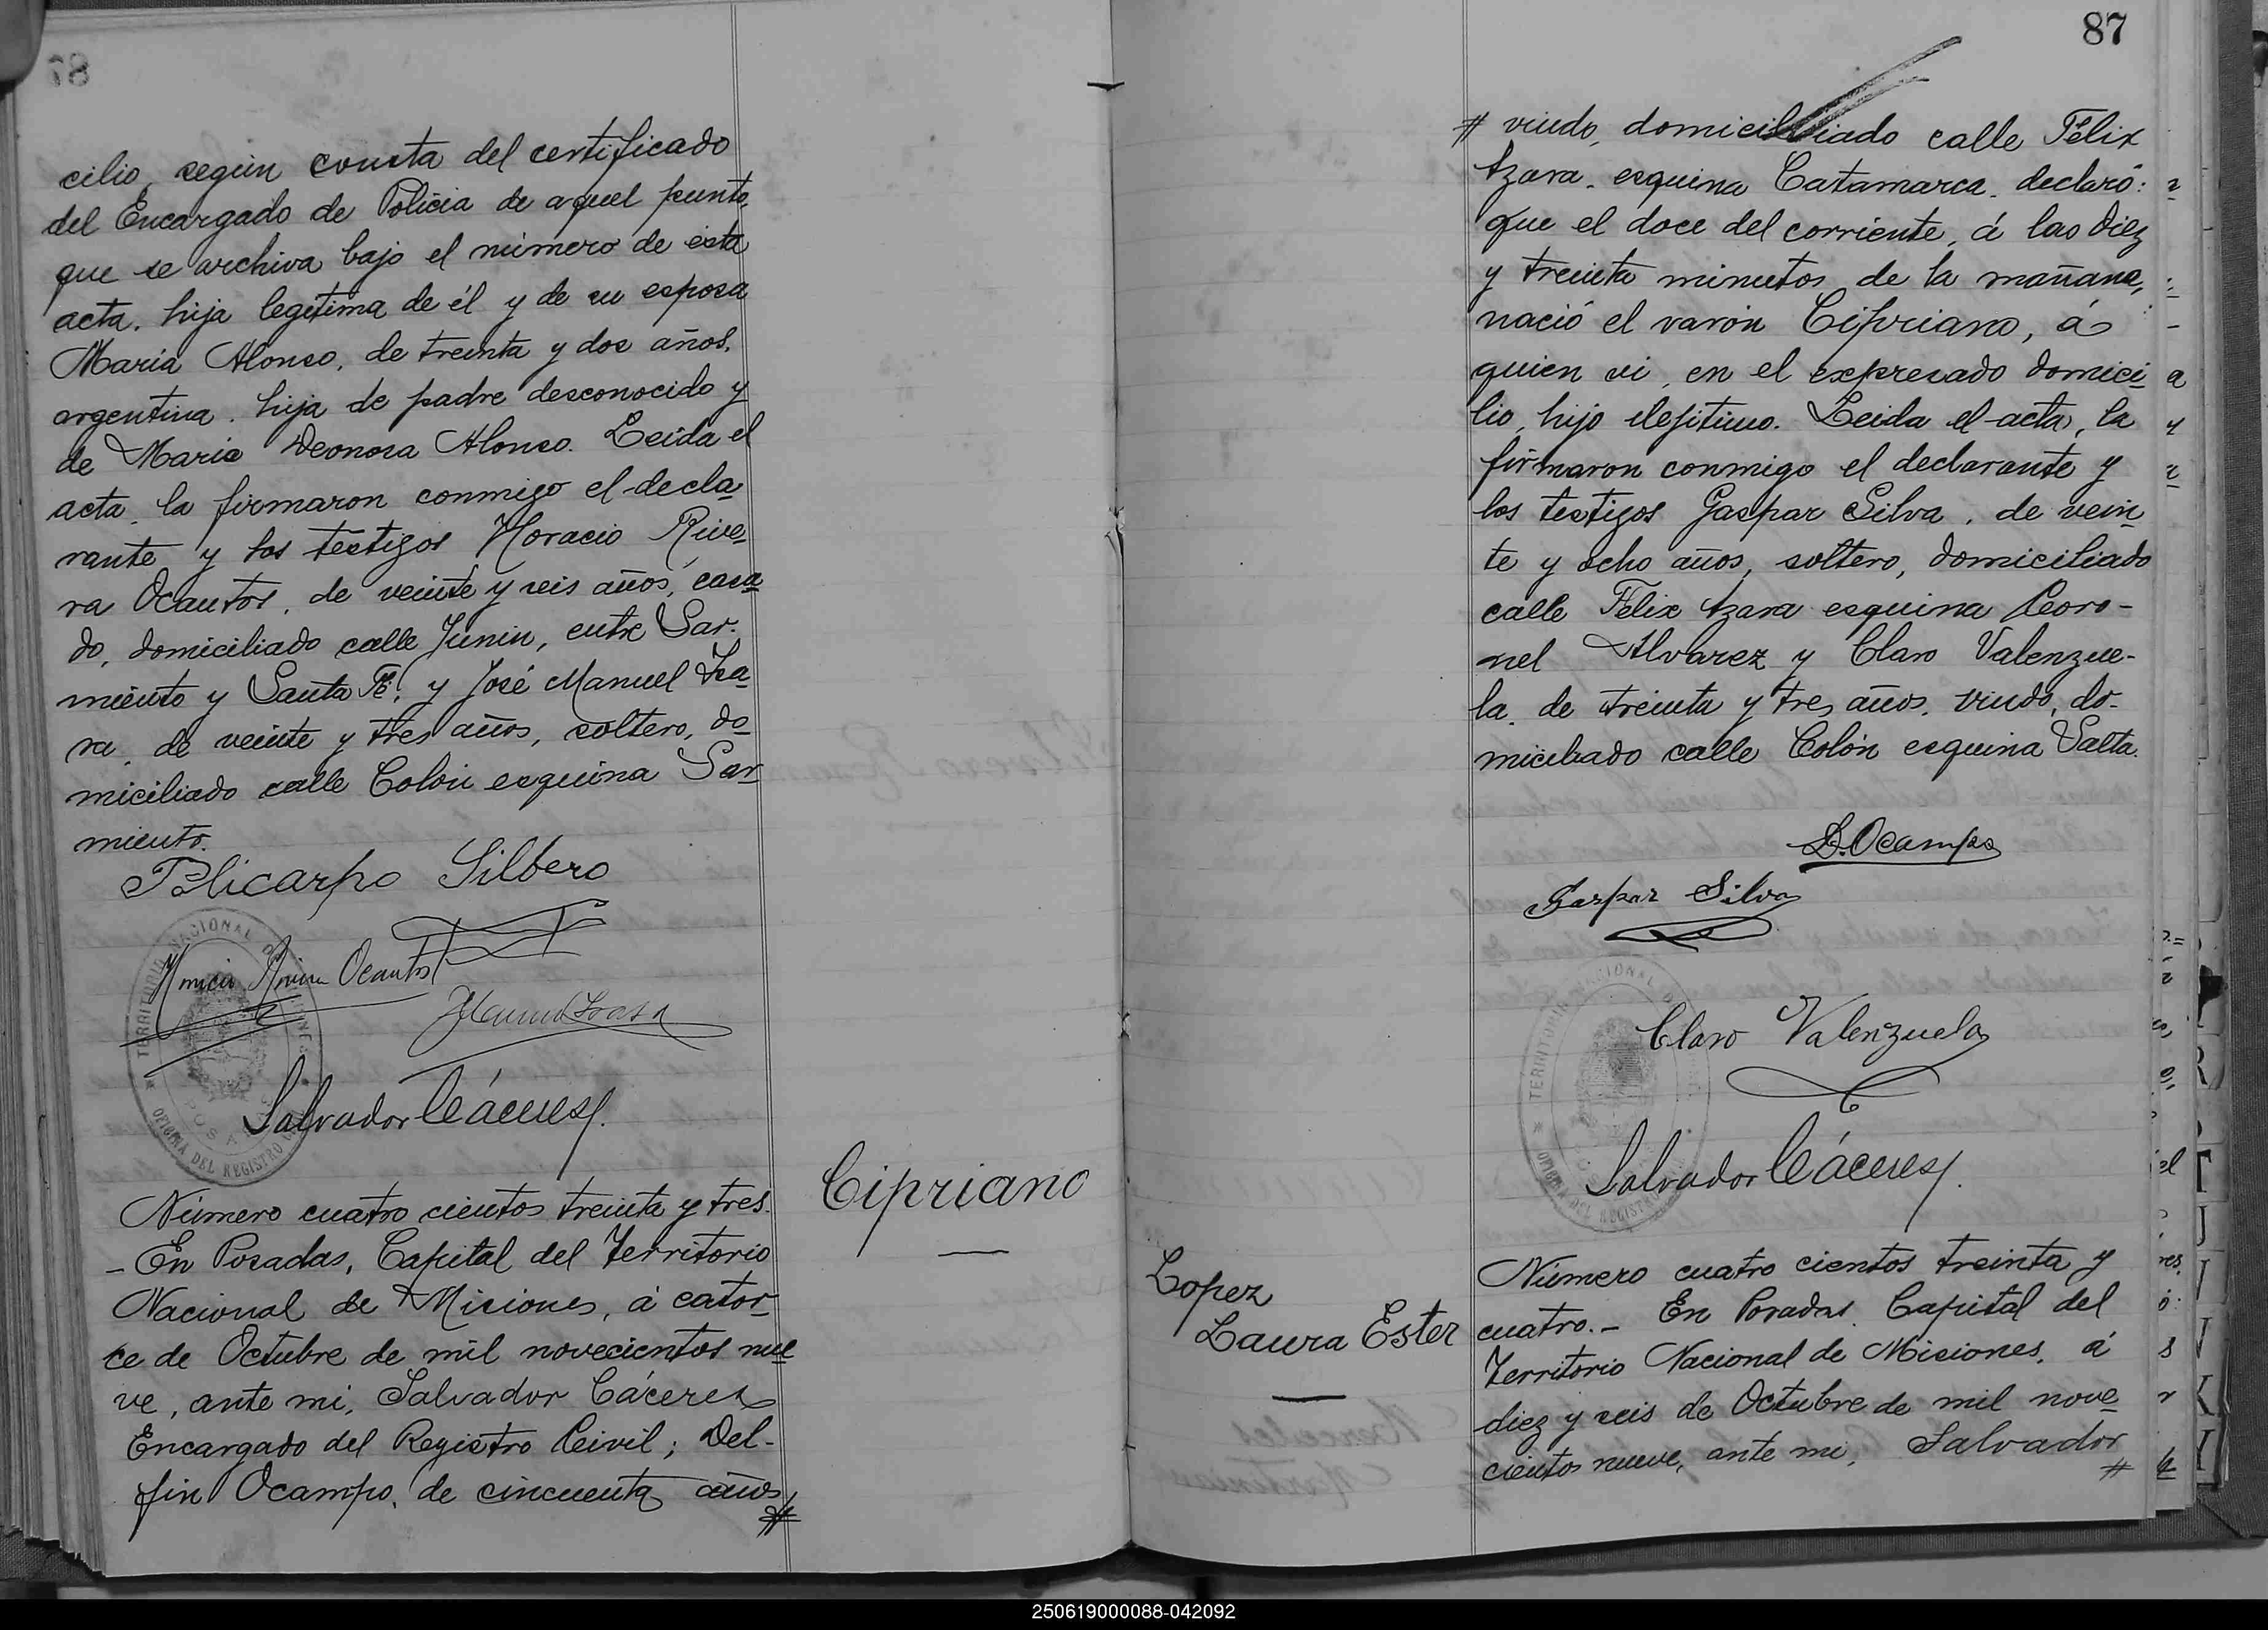 cilio, según consta del certificado
del Encargado de Policia de aquel punto,
que se archiva bajo el número de esta
acta, hija legítima de él y de su esposa
Maria Alonso, de treinta y dos años,
argentina, hija de padre desconocido y
de Maria Leonora Alonso. Leida el
acta, la firmaron conmigo el decla
rante y los testigos Horacio Rive
ra Ocantos, de veinte y seis años, casa
do, domiciliado calle Junin, entre Sar-
miento y Santa Fé, y José Manuel Isa
ra, de veinte y tres años, soltero, do
miciliado calle Colón esquina Sar
miento.
Policarpo Silbero
Ocantos
Salvador Cáceres
TERRITORIO NACIONAL DE MISIONES
POSADAS
OFICINA DEL REGISTRO CIVIL
Número cuatro cientos treinta y tres.
- En Posadas, Capital del Territorio
Nacional de Misiones, á cator
ce de Octubre de mil novecientos nue
ve, ante mi, Salvador Cáceres
Encargado del Registro Civil; Del-
fin Ocampo, de cincuenta años
#
Cipriano
87
# viudo, domiciliado calle Felix
Azara esquina Catamarca, declaró:
que el doce del corriente, á las diez
y treinta minutos de la mañana,
nació el varón Cipriano, á
quien vi, en el expresado domici
lio, hijo ilegitimo. Leida el acta, la
firmaron conmigo el declarante y
los testigos Gaspar Silva, de vein
te y ocho años, soltero, domiciliado
calle Felix Azara esquina Coro-
nel Alvarez y Claro Valenzue-
la, de treinta y tres años, viudo, do-
miciliado calle Colón esquina Salta.
D. Ocampo
Gaspar Silva
Claro Valenzuela
Salvador Cáceres
TERRITORIO NACIONAL D
OFICINA DEL REGISTRO
Lopez
Laura Ester
Número cuatro cientos treinta y
cuatro.- En Posadas, Capital del
Territorio Nacional de Misiones, á
diez y seis de Octubre de mil nove
cientos nueve, ante mi, Salvador
#
250619000088-042092